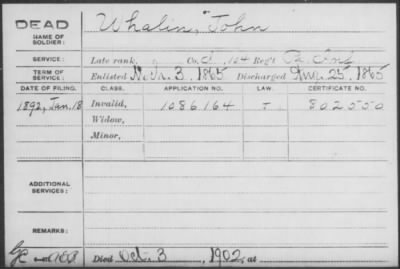 DEAD
NAME OF SOLDIER: Whalin, John
SERVICE: Late rank, Co. 104 Reg't Pa. Inf.
TERM OF SERVICE: Enlisted Mch. 3, 1865 Discharged Aug. 25, 1865
DATE OF FILING. CLASS. APPLICATION NO. LAW. CERTIFICATE NO.
1892, Jan. 18 Invalid, 1086164 802550
Widow,
Minor,
ADDITIONAL SERVICES:
REMARKS:
Died Oct. 3, 1902, at